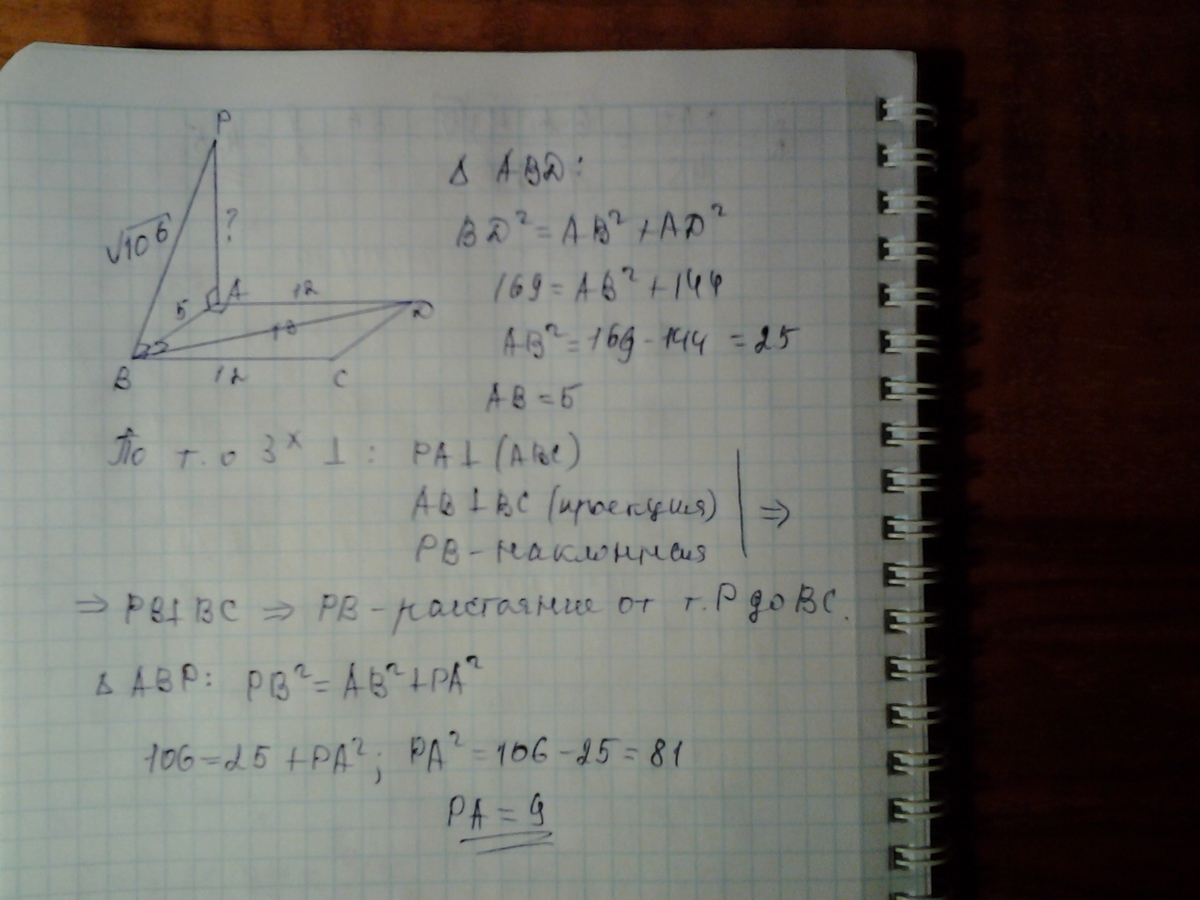 P
√106
?
5
A
12
13
D
B
12
C
Δ ABD:
BD² = AB² + AD²
169 = AB² + 144
AB² = 169 - 144 = 25
AB = 5
По т. о 3ˣ ⊥: PA ⊥ (ABC)
AB ⊥ BC (проекция)
PB - наклонная
⇒
⇒ PB ⊥ BC ⇒ PB - расстояние от т. P до BC.
Δ ABP: PB² = AB² + PA²
106 = 25 + PA²; PA² = 106 - 25 = 81
PA = 9